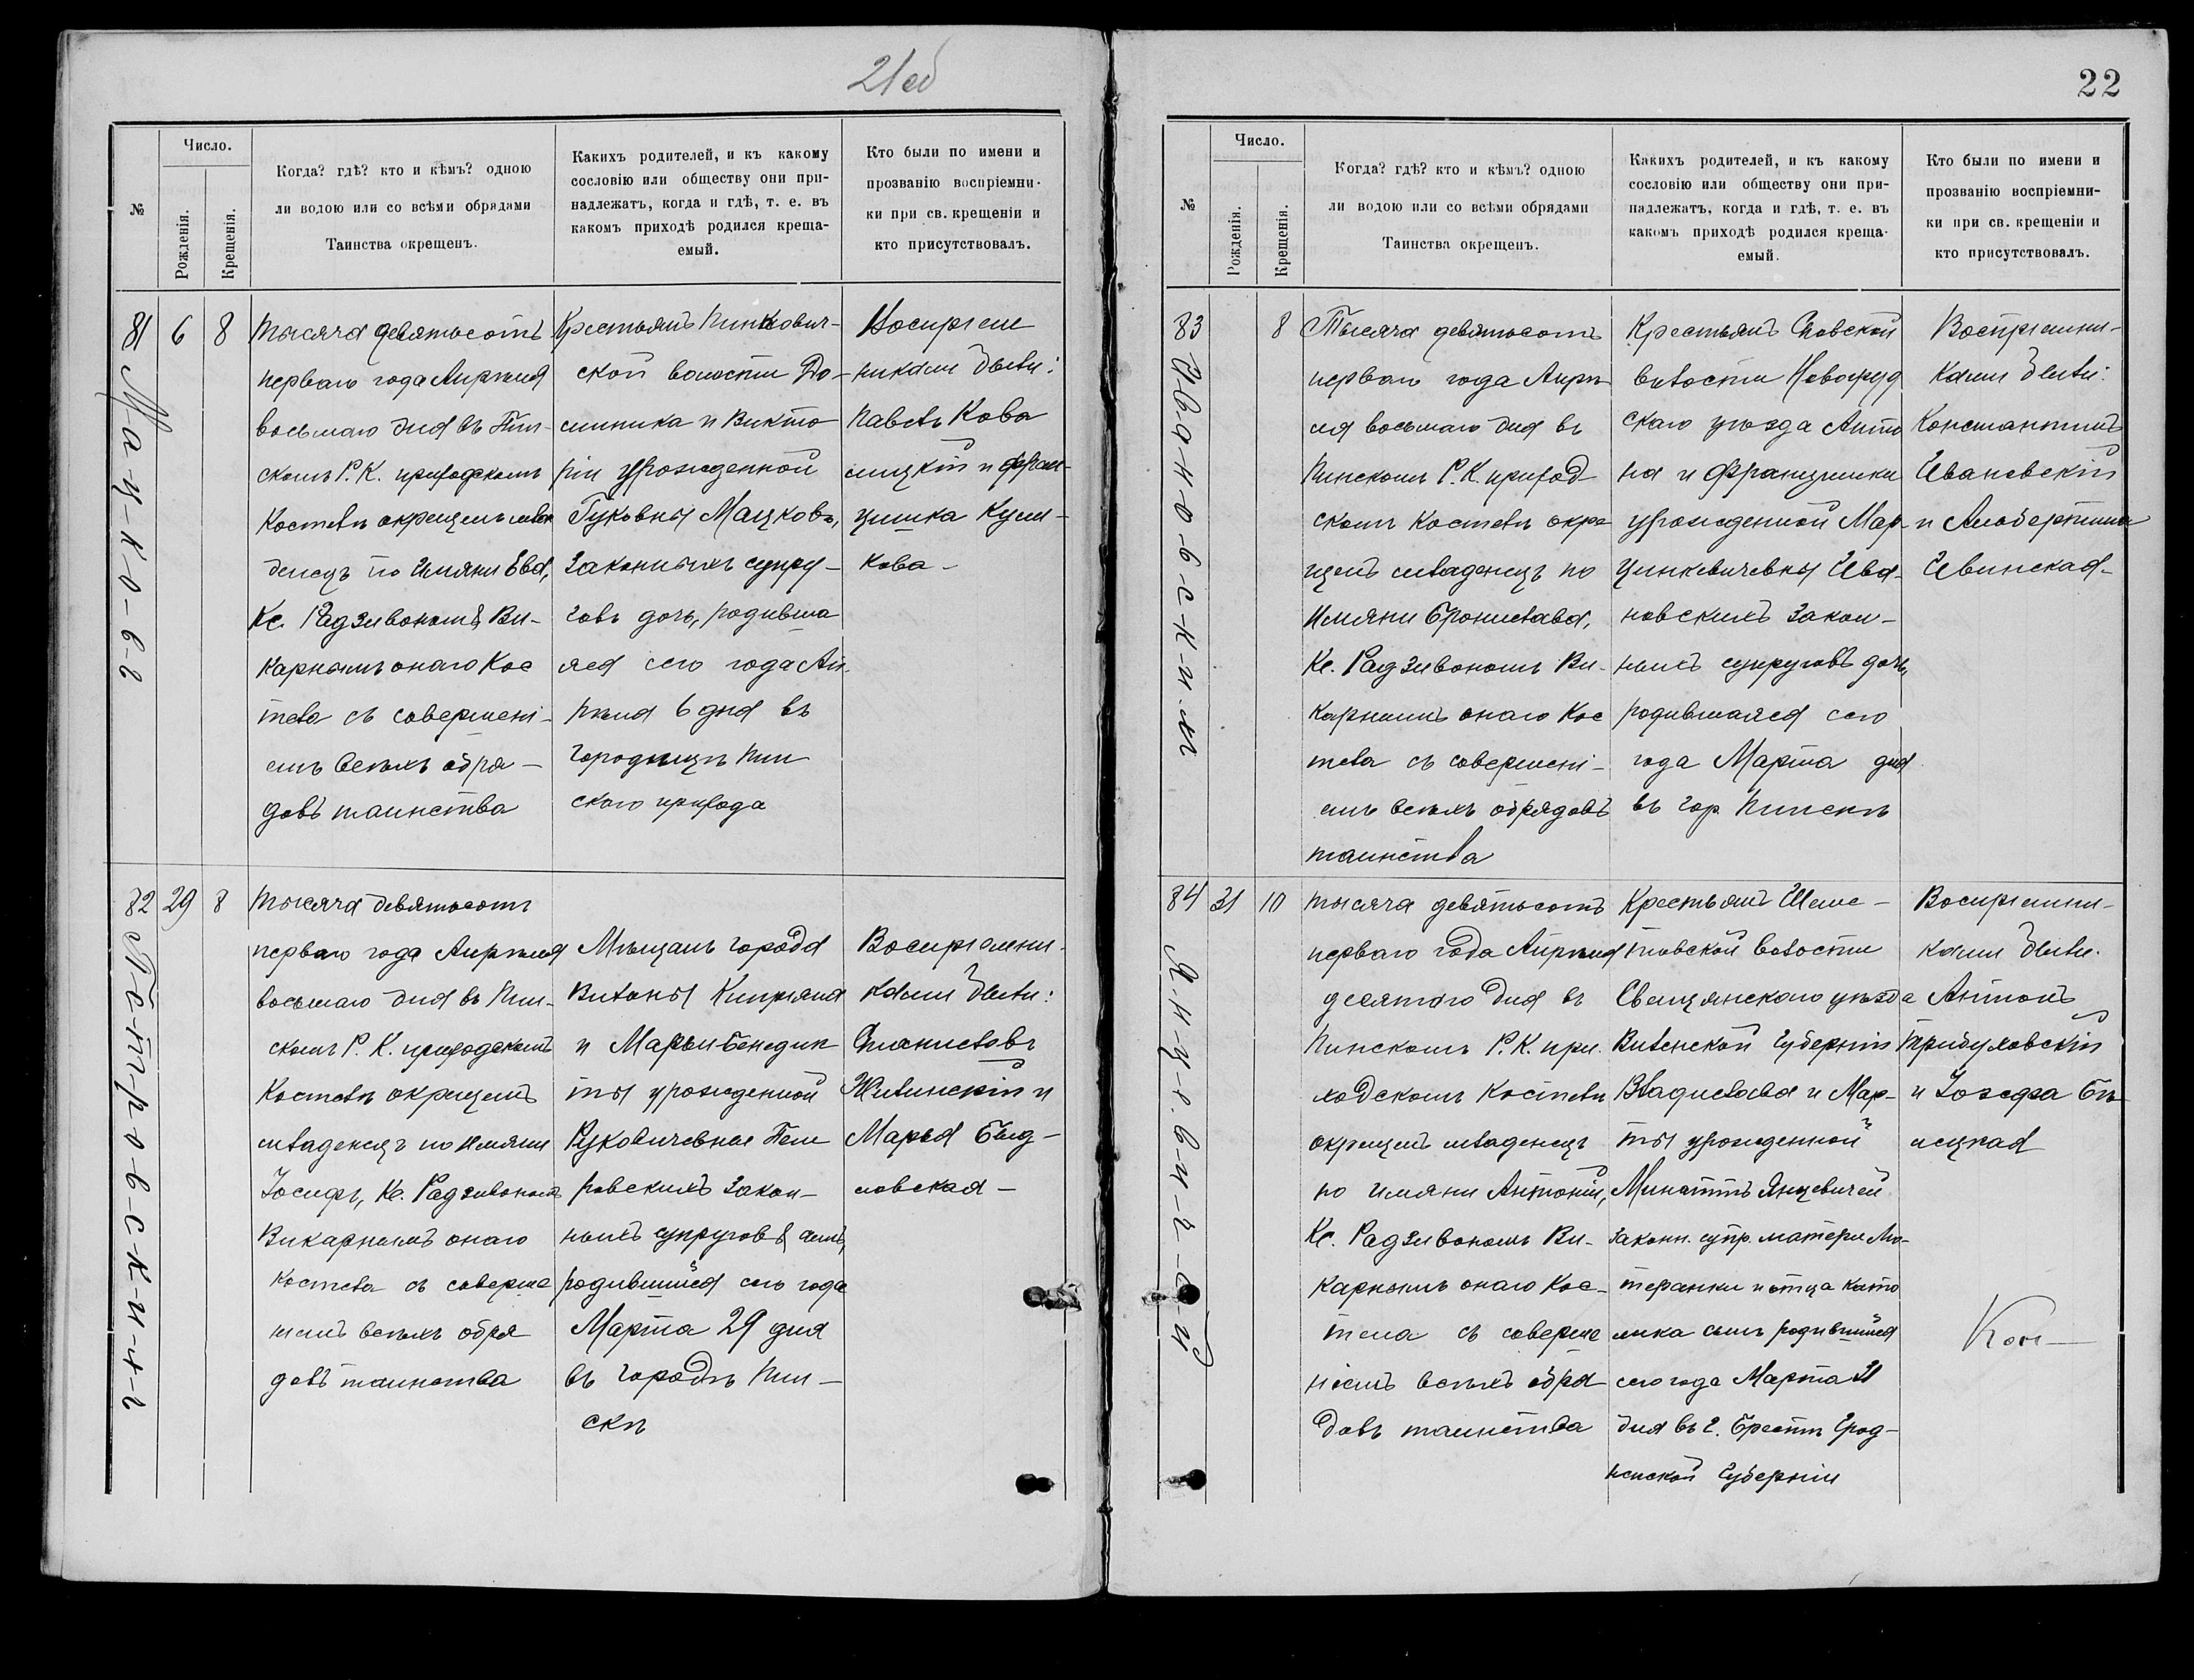 21об
№
Число.
Рожденія.
Крещенія.
Когда? гдѣ? кто и кѣмъ? одною
ли водою или со всѣми обрядами
Таинства окрещенъ.
Какихъ родителей, и къ какому
сословію или обществу они при-
надлежатъ, когда и гдѣ, т. е. въ
какомъ приходѣ родился креща-
емый.
Кто были по имени и
прозванію воспріемни-
ки при св. крещеніи и
кто присутствовалъ.
81
6
8
М-а-ц-к-о-в-а
Тысяча девятьсотъ
перваго года Апрѣля
восьмаго дня въ Пин-
скомъ Р. К. приходскомъ
Костелѣ окрещенъ мла
денецъ по Имяни Ева,
Кс. Радзивономъ Ви-
карнымъ онаго Кос
тела съ совершені-
емъ всѣхъ обря-
довъ таинства
Крестьянъ Пинкович-
ской волости До-
миника и Викто
ріи урожденной
Гуковны Мацковъ,
Законныхъ супру-
говъ дочь, родивша
яся сего года Ап-
рѣля 6 дня въ
Городищѣ Пин
скаго прихода
Воспріем
никами были:
Павелъ Кова
лицкій и Фран-
цишка Кули-
кова-
82
29
8
П-е-т-р-о-в-с-к-и-й
Тысяча девятьсотъ
перваго года Апрѣля
восьмаго дня въ Пин-
скомъ Р. К. приходскомъ
Костелѣ окрещенъ
младенецъ по Имяни
Іосифъ, Кс. Радзивономъ
Викарнымъ онаго
Костела съ соверше
ніемъ всѣхъ обря
довъ таинства
Мѣщанъ города
Вильны Кипріяна
и Марьи-Бенедик
ты урожденной
Руковичевны Пет
ровскихъ закон-
ныхъ супруговъ сынъ,
родившійся сего года
Марта 29 дня
въ городѣ Пин-
скѣ
Воспріемни-
ками были:
Станиславъ
Жилинскій и
Марья
ловская-
22
№
Число.
Рожденія.
Крещенія.
Когда? гдѣ? кто и кѣмъ? одною
ли водою или со всѣми обрядами
Таинства окрещенъ.
Какихъ родителей, и къ какому
сословію или обществу они при-
надлежатъ, когда и гдѣ, т. е. въ
какомъ приходѣ родился креща-
емый.
Кто были по имени и
прозванію воспріемни-
ки при св. крещеніи и
кто присутствовалъ.
83
8
И-в-а-н-о-в-с-к-и-м
Тысяча девятьсотъ
перваго года Апрѣ
ля восьмаго дня въ
Пинскомъ Р. К. приход-
скомъ Костелѣ окре
щенъ младенецъ по
Имяни Бронислава,
Кс. Радзивономъ Ви-
карнымъ онаго Кос
тела съ совершені-
емъ всѣхъ обрядовъ
таинства
Крестьянъ
волости Новогруд
скаго уѣзда Анто
на и Францишки
урожденной Мар-
цинкевичевны Ива-
новскихъ закон-
ныхъ супруговъ дочь,
родившаяся сего
года Марта дня
въ гор. Пинскѣ
Воспріемни-
ками были:
Константинъ
Ивановскій
и Альбертина
Ивинская-
84
31
10
Я-н-ц-е-в-и-ч-е-й
Тысяча девятьсотъ
перваго года Апрѣля
десятаго дня въ
Пинскомъ Р. К. при-
ходскомъ Костелѣ
окрещенъ младенецъ
по имяни Антоній,
Кс. Радзивономъ Ви-
карнымъ онаго Кос-
тела съ соверше
ніемъ всѣхъ обря
довъ таинства
Крестьянъ Шеме-
товской волости
Свенцянскаго уѣзда
Виленской Губерніи
Владислава и Мар-
ты урожденной
Янцевичей
законн. супр. матери Лю-
теранки и отца Като
лика сынъ родившійся
сего года Марта 31
дня въ г. Брестѣ Грод-
ненской Губерніи
Воспріемни-
ками были.
Антонъ
и Іозефа Бѣ
лецкая